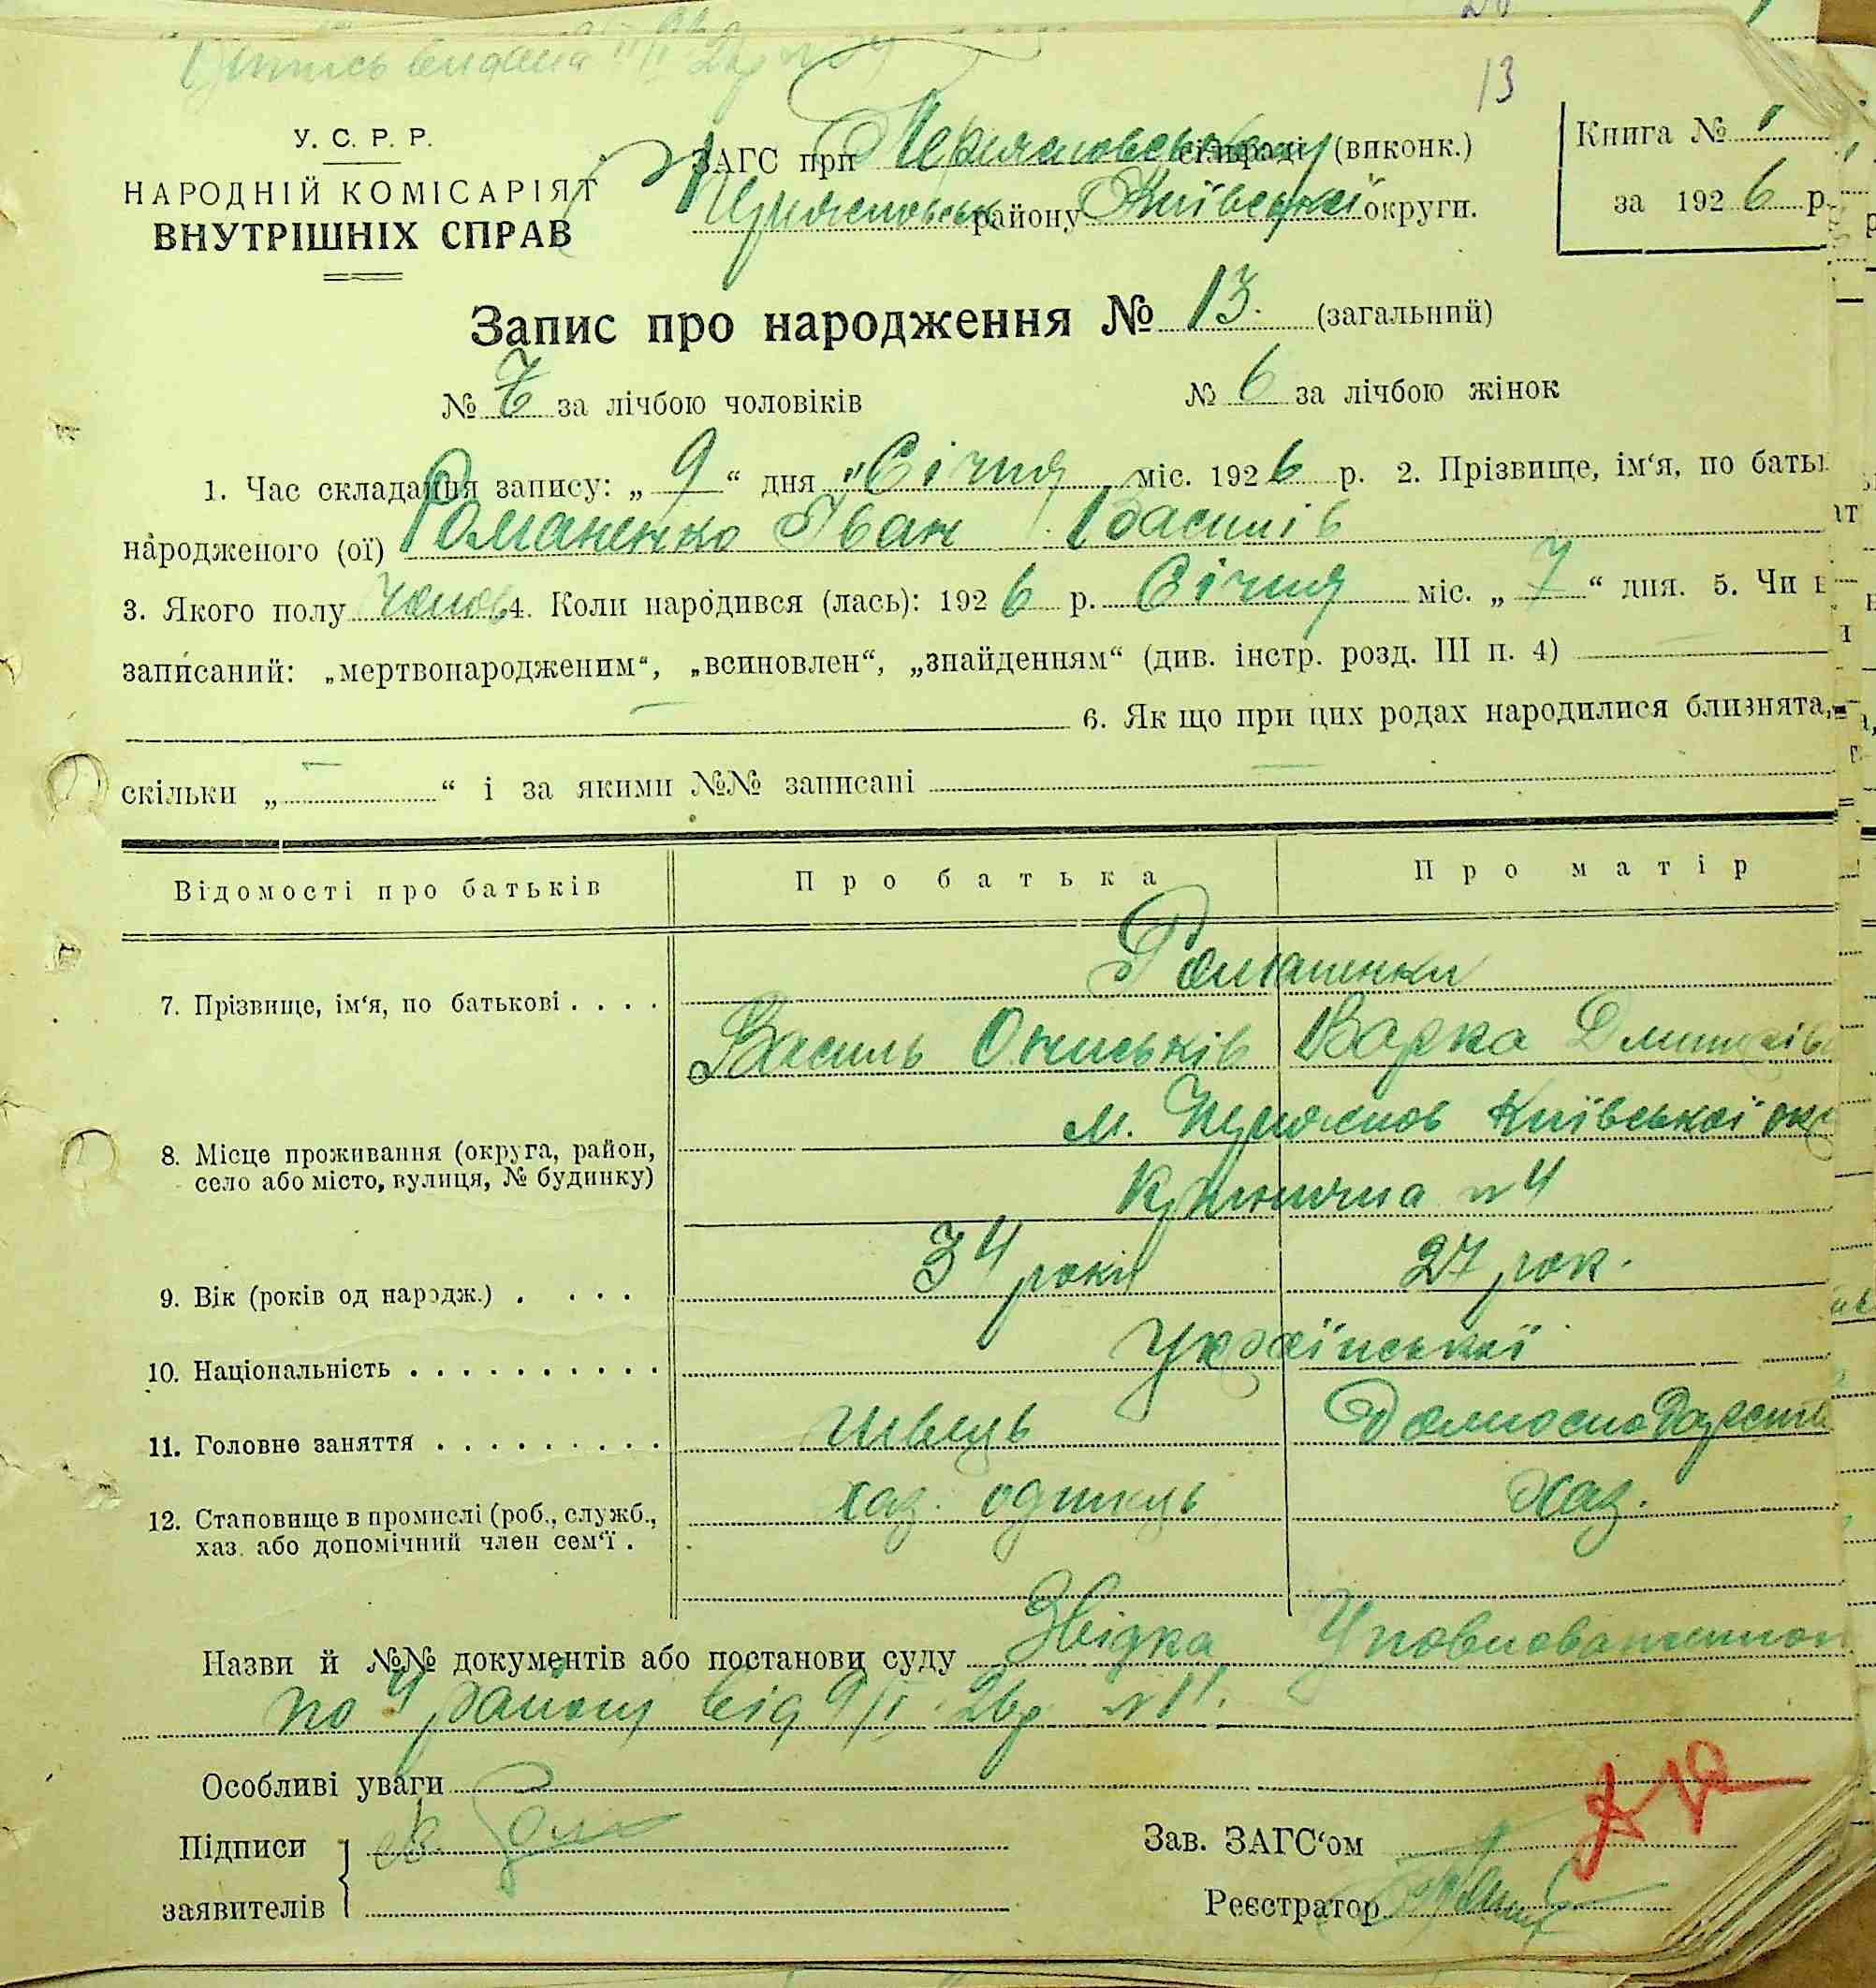 13
У. С. Р. Р.
НАРОДНІЙ КОМІСАРІЯТ
ВНУТРІШНІХ СПРАВ
ЗАГС при сільраді (виконк.)
району Київської округи.
Книга № 1
за 1926 р.
Запис про народження № 13. (загальний)
№ 7 за лічбою чоловіків № 6 за лічбою жінок
1. Час складання запису: „ 9 “ дня Січня міс. 1926 р. 2. Прізвище, ім‘я, по батьк
народженого (ої) Романенко Іван Василів
3. Якого полу Чолов 4. Коли народився (лась): 1926 р. Січня міс. „ 7 “ дня. 5. Чи
записаний: „мертвонародженим“, „всиновлен“, „знайденням“ (див. інстр. розд. III п. 4)
6. Як що при цих родах народилися близнята,
скільки „ “ і за якими №№ записані
Відомості про батьків Про батька Про матір
Романенки
7. Прізвище, ім‘я, по батькові . . . .
Василь Ониськів Варка Дмитрів
м. Київської окр
8. Місце проживання (округа, район,
село або місто, вулиця, № будинку)
№ 4
9. Вік (років од народж.) . . . . 34 роки 27 рок.
10. Національність . . . . . . . . . . Української
11. Головне заняття . . . . . . . . . Швець Домогосподарств
12. Становище в промислі (роб., служб.,
хаз. або допомічний член сем‘ї . хаз. одинець хаз.
Назви й №№ документів або постанови суду Звідка Уповноваженног
по 4 району від 9/I 26р № 11.
Особливі уваги
Підписи
заявителів
Зав. ЗАГС‘ом
Реєстратор